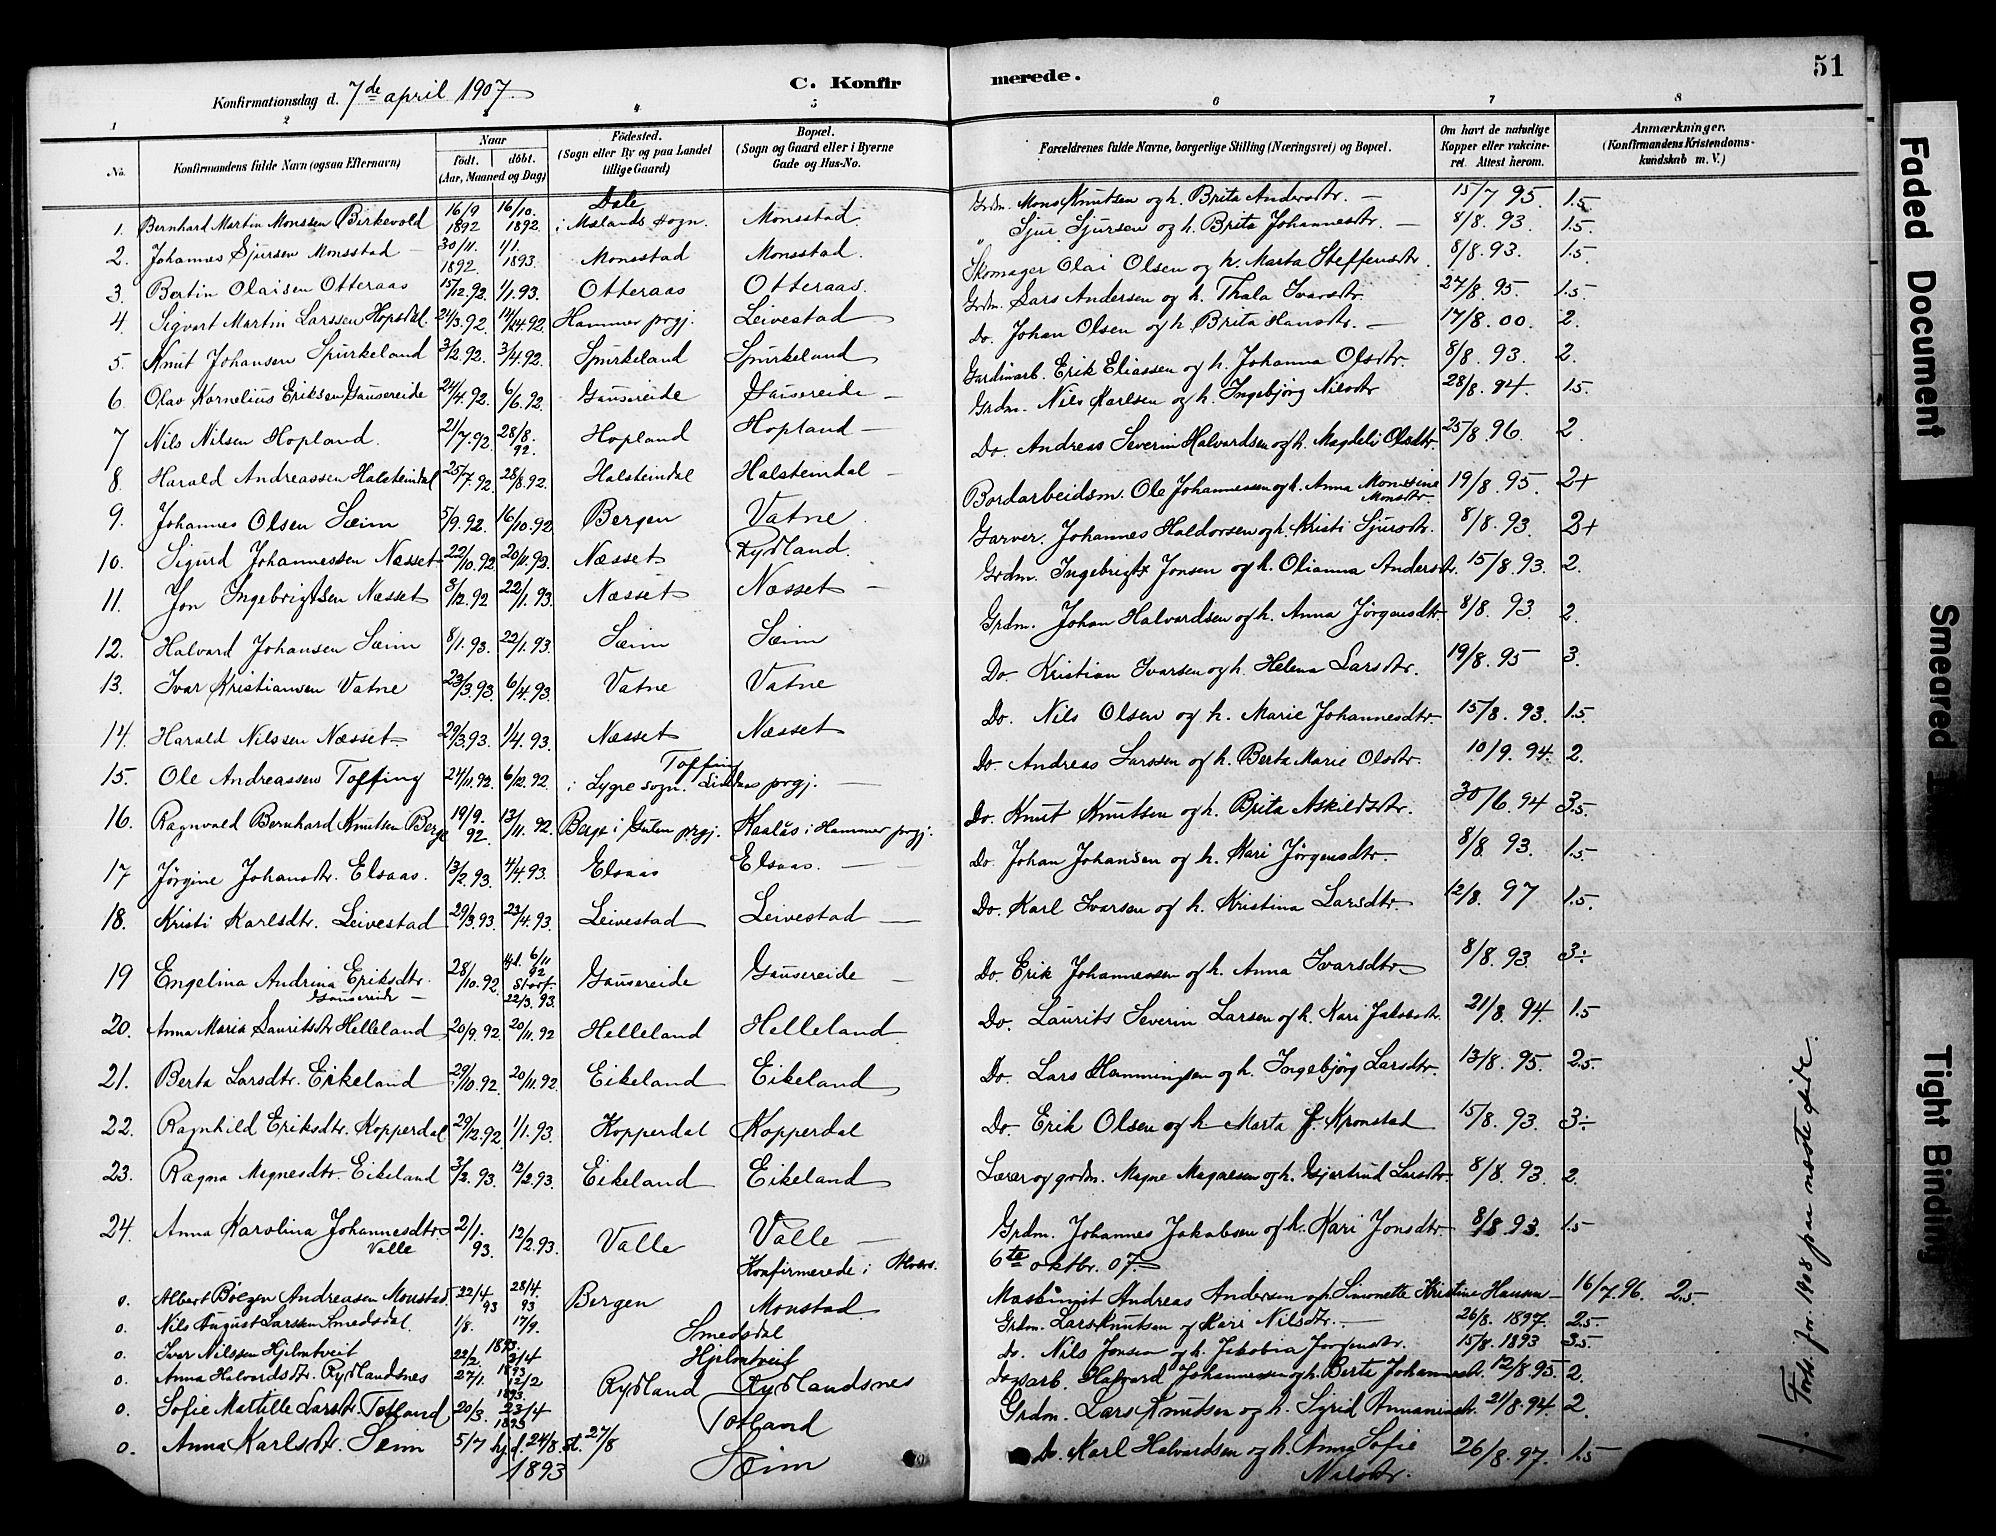 51
Konfirmationsdag d. 7de april 1907.
C. Konfirmerede.
1 2 3 4 5 6 7 8
No. Konfirmandens fulde Navn (ogsaa Efternavn) Naar födt. döbt. (Aar, Maaned og Dag) Födested. (Sogn eller By og paa Landet tillige Gaard) Bopæl. (Sogn og Gaard eller i Byerne Gade og Hus-No. Forældrenes fulde Navne, borgerlige Stilling (Næringsvei) og Bopæl. Om havt de naturlige Kopper eller vakcineret. Attest herom. Anmærkninger. (Konfirmandens Kristendomskundskab m. V.)
1. Bernhard Martin Monssen Birkevold 16/9 1892 16/10. 1892. Dale i Mælands sogn. Monsstad. Grdm. Mons Knutsen og h. Brita Andersdtr. — 15/7 95. 1.5
2. Johannes Sjursen Monsstad — 30/11. 1892 1/1. 1893. Monsstad Monsstad. " Sjur Sjursen og h. Brita Johannesdtr. — 8/8. 93. 1.5.
3. Bertin Olaisen Otteraas 15/12.92. 1/1.93. Otteraas Otteraas. Skomager Olai Olsen og h. Marta Steffensdtr. 8/8.93. 1.5.
4. Sigvart Martin Larssen Hopsdal. 24/3.92. 14/24.92. Hammer prgj. Leivestad Grdm. Lars Andersen og h. Thala Ivarsdtr. 27/8. 95. 1.5
5. Knut Johansen Spurkeland 3/2.92. 3/4.92. Spurkeland Spurkeland Do. Johan Olsen og h. Brita Hansdtr. — 17/8. 00. 2.
6. Olav Kornelius Eriksen Gausereide 24/4.92. 6/6.92. Gausereide Gausereide — Gardinarb. Erik Eliassen og h. Johanna Olsdtr. 8/8. 93. 2.
7 Nils Nilsen Hopland. 21/7.92. 28/8. 92. Hopland Hopland — Grdm. Nils Karlsen og h. Ingebjörg Nilsdtr 28/8. 94. 1.5
8. Harald Andreassen Halsteindal 25/7.92. 28/8.92. Halsteindal Halsteindal — Do. Andreas Severin Halvardsen og h. Magdeli Olsdtr. 25/8. 96. 2
9. Johannes Olsen Sæim 5/9.92. 16/10.92 Bergen Vatne. Bordarbeidsm. Ole Johannessen og h. Anna Monsine Monsdtr. 19/8. 95. 2+
10. Sigurd Johannessen Næsset 22/10.92. 20/11.92. Næsset Rydland. Garver. Johannes Haldorsen og h. Kristi Sjursdtr. 8/8. 93. 2+
11. Jon Ingebrigtsen Næsset 8/12.92 22/1.93. Næsset Næsset — Grdm. Ingebrigt Jonsen og h. Olianna Andersdtr. 15/8.93. 2.
12. Halvard Johansen Sæim 8/1.93. 22/1.93. Sæim Sæim Grdm. Johan Halvardsen og h. Anna Jörgensdtr. 8/8. 93 2.
13. Ivar Kristiansen Vatne 23/3.93. 6/4.93. Vatne Vatne Do. Kristian Ivarsen og h. Helena Larsdtr. 19/8. 95 3.
14. Harald Nilssen Næsset. 29/3.93. 1/4.93. Næsset Næsset Do. Nils Olsen og h. Marie Johannesdtr. 15/8. 93. 1.5.
15. Ole Andreassen Toffing 24/11.92. 6/12.92. Toffing i Lygre sogn. Lindaas prgj. — Do. Andreas Larssen og h. Berta Marie Olsdtr. 10/9. 94. 2.
16. Ragnvald Bernhard Knutsen Berge 19/9. 92. 13/11. 92. Berge i Gulen prgj. Kaalås i Hammer prgj. Do. Knut Knutsen og h. Brita Askildsdtr. 30/6. 94 3.5.
17 Jörgine Johansdtr. Elsaas. 13/2.93. 4/4.93. Elsaas Elsaas. — Do. Johan Johansen og h. Kari Jörgensdtr. 8/8. 93. 1.5
18. Kristi Karlsdtr. Leivestad 29/3.93. 23/4.93. Leivestad Leivestad — Do. Karl Ivarsen og h. Kristina Larsdtr. 12/8. 97 1.5.
19 Engelina Andrina Eriksdtr. Gausereide — 28/10.92. hjd. 6/11 92 stadf. 22/3.93. Gausereide Gausereide — Do. Erik Johannessen og h. Anna Ivarsdtr 8/8. 93. 3÷
20. Anna Maria Lauritsdtr Helleland 20/9.92. 20/11.92 Helleland Helleland Do. Laurits Severin Larsen og h. Kari Jakobsdtr. 21/8. 94. 1.5
21. Berta Larsdtr. Eikeland 29/10.92. 20/11.92. Eikeland Eikeland Do. Lars Hammingsen og h. Ingebjörg Larsdtr. 13/8. 95. 2.5.
22. Ragnhild Eriksdtr. Kopperdal 29/12.92 1/1.93. Kopperdal Kopperdal Do. Erik Olsen og h. Marta f. Kronstad 15/8. 93. 3÷
23. Ragna Magnesdtr. Eikeland 3/2.93. 12/2.93. Eikeland Eikeland Lærer og grdm. Magne Magnesen og h. Gjertrud Larsdtr. 8/8. 93. 2.
24. Anna Karolina Johannesdtr. Valle 2/1. 93. 12/2.93. Valle Valle — Grdm. Johannes Jakobsen og h. Kari Jonsdtr. 8/8.93. 1.5
Konfirmerede i 6te oktbr. 07.
o. Albert Börgen Andreasen Monstad. 22/4. 93 28/4. 93 Bergen Monstad Maskinist Andreas Andersen og h. Simonette Kristine Hansen — 16/7.96. 2.5
o. Nils August Larssen Smedsdal 1/8. 17/9. 1893. Smedsdal Grdm. Lars Knutsen og Kari Nilsdtr. — 26/8. 1897. 2.5.
o. Iver Nilssen Hjelmtveit 22/2. 3/4 1893 Hjelmtveit Do. Nils Jonsen og h. Jakobia Jorgensdtr. 15/8. 1893 3.5
o. Anna Halvardsdtr. Rydlandsnes 27/1. 12/2 1893. Rydland Rydlandsnes Dagarb. Halvard Johannessen og h. Berta Johannesdt. 12/8.95 2.
o. Sofie Matilde Larsdtr. Totland 20/3. 23/4 1893 Totland Grdm. Lars Knudsen og h. Sigrid Annaniasdtr. 21/8.94. 2.
o. Anna Karlsdtr. Seim 5/7 hj.d. 24/8. st. 27/8 1893 Sæim Do. Karl Halvardsen og h. Anna Sofie Nilsdtr. 26/8. 97. 1.5
Forts. for 1908 paa næste side.
Faded Document
Smeared
Tight Binding